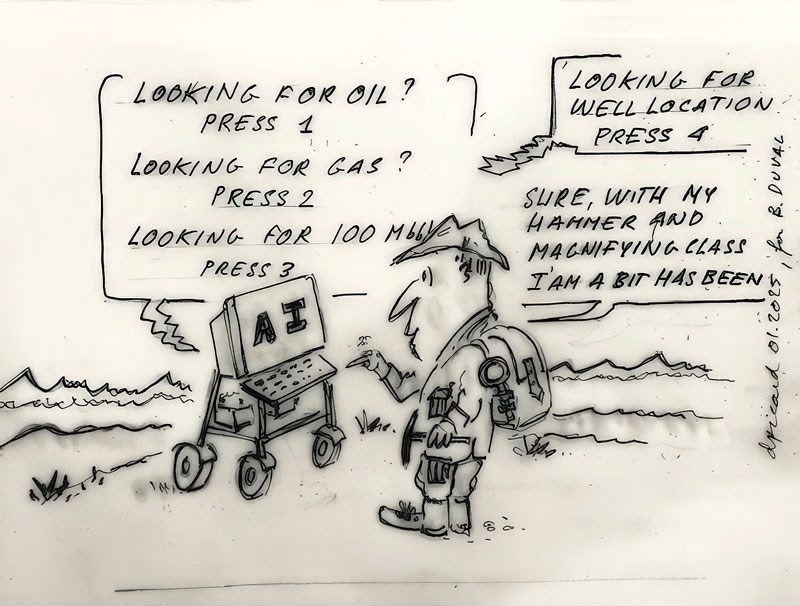 LOOKING FOR OIL?
PRESS 1
LOOKING FOR GAS?
PRESS 2
LOOKING FOR 100 Mbbl
PRESS 3
LOOKING FOR
WELL LOCATION
PRESS 4
AI
SURE, WITH MY
HAMMER AND
MAGNIFYING CLASS
I'AM A BIT HAS BEEN
dpicard 01.2025, for B. DUVAL